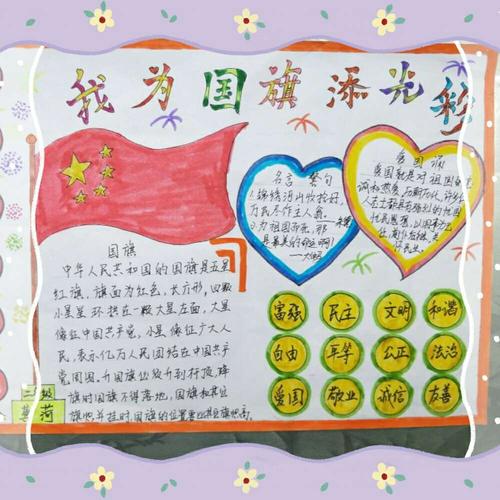 我为国旗添光彩
国旗
中华人民共和国的国旗是五星
红旗，旗面为红色，长方形，四颗
小星星环拱在一颗大星左面，大星
像征中国共产党，小星像征广大人
民，表示亿万人民团结在中国共产
党周围。升国旗必须升到杆顶，降
旗时国旗不得落地，国旗和其它
旗帜并挂时，国旗的位置要比其它旗帜高。
名言 警句
1.锦绣河山收拾好，
万民尽作主人翁。
2.为祖国而死，那
是最美的命运啊！
爱国
爱国就是对祖国的
富强 民主 文明 和谐
自由 平等 公正 法治
爱国 敬业 诚信 友善